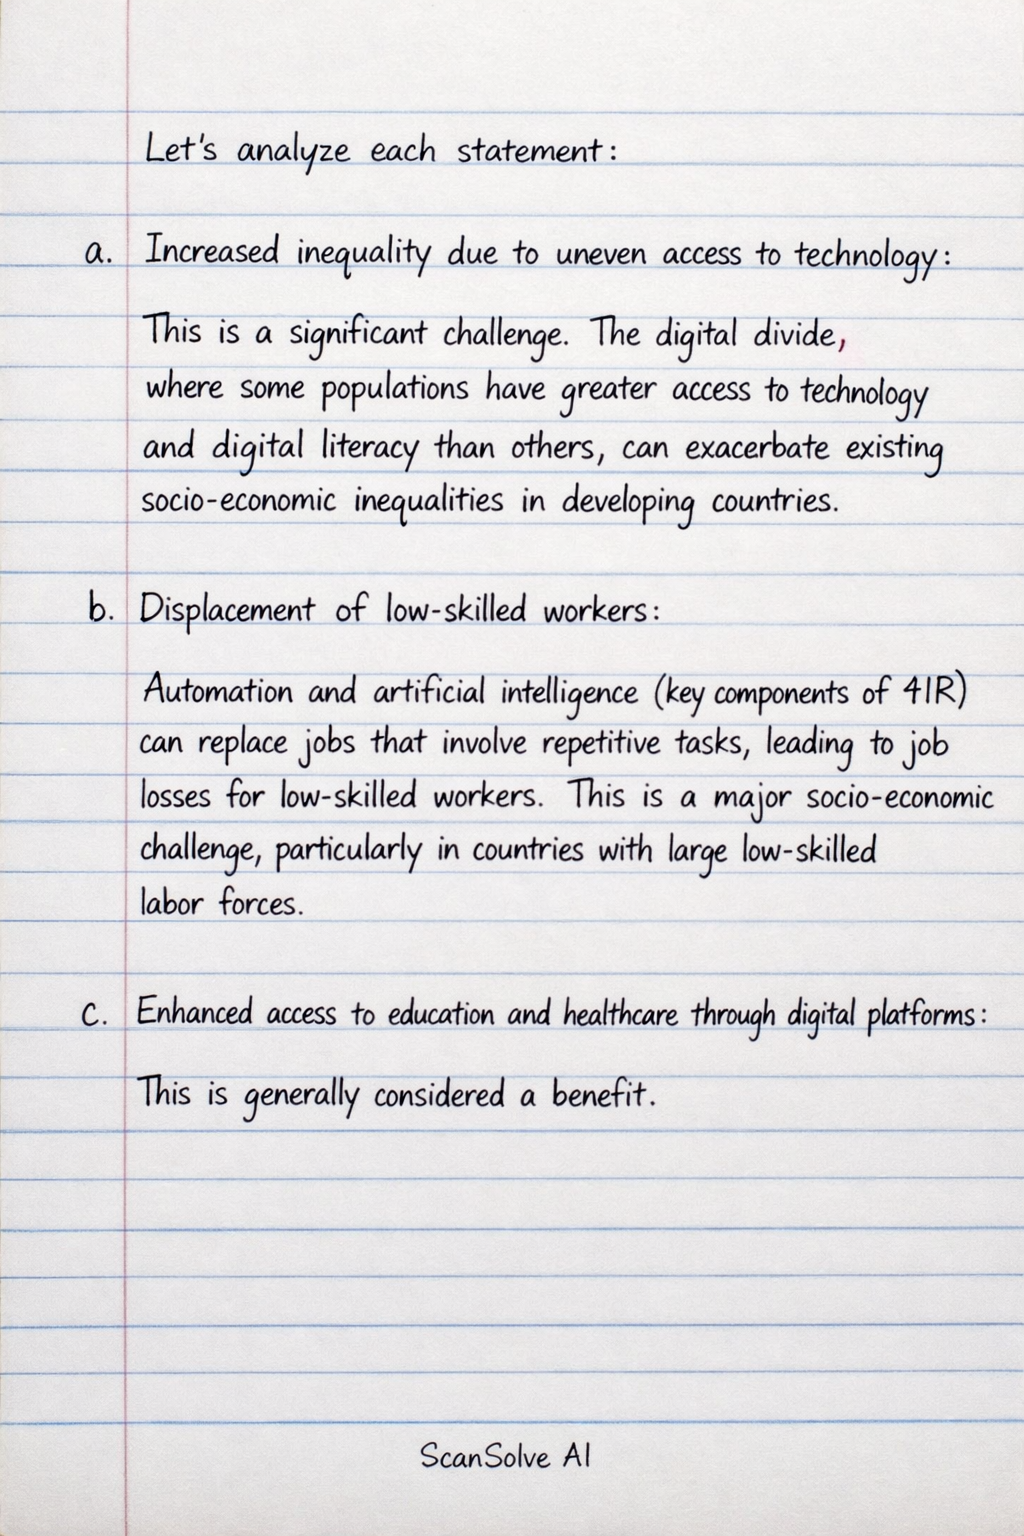 Let's analyze each statement:
a. Increased inequality due to uneven access to technology:
This is a significant challenge. The digital divide,
where some populations have greater access to technology
and digital literacy than others, can exacerbate existing
socio-economic inequalities in developing countries.
b. Displacement of low-skilled workers:
Automation and artificial intelligence (key components of 4IR)
can replace jobs that involve repetitive tasks, leading to job
losses for low-skilled workers. This is a major socio-economic
challenge, particularly in countries with large low-skilled
labor forces.
c. Enhanced access to education and healthcare through digital platforms:
This is generally considered a benefit.
ScanSolve AI